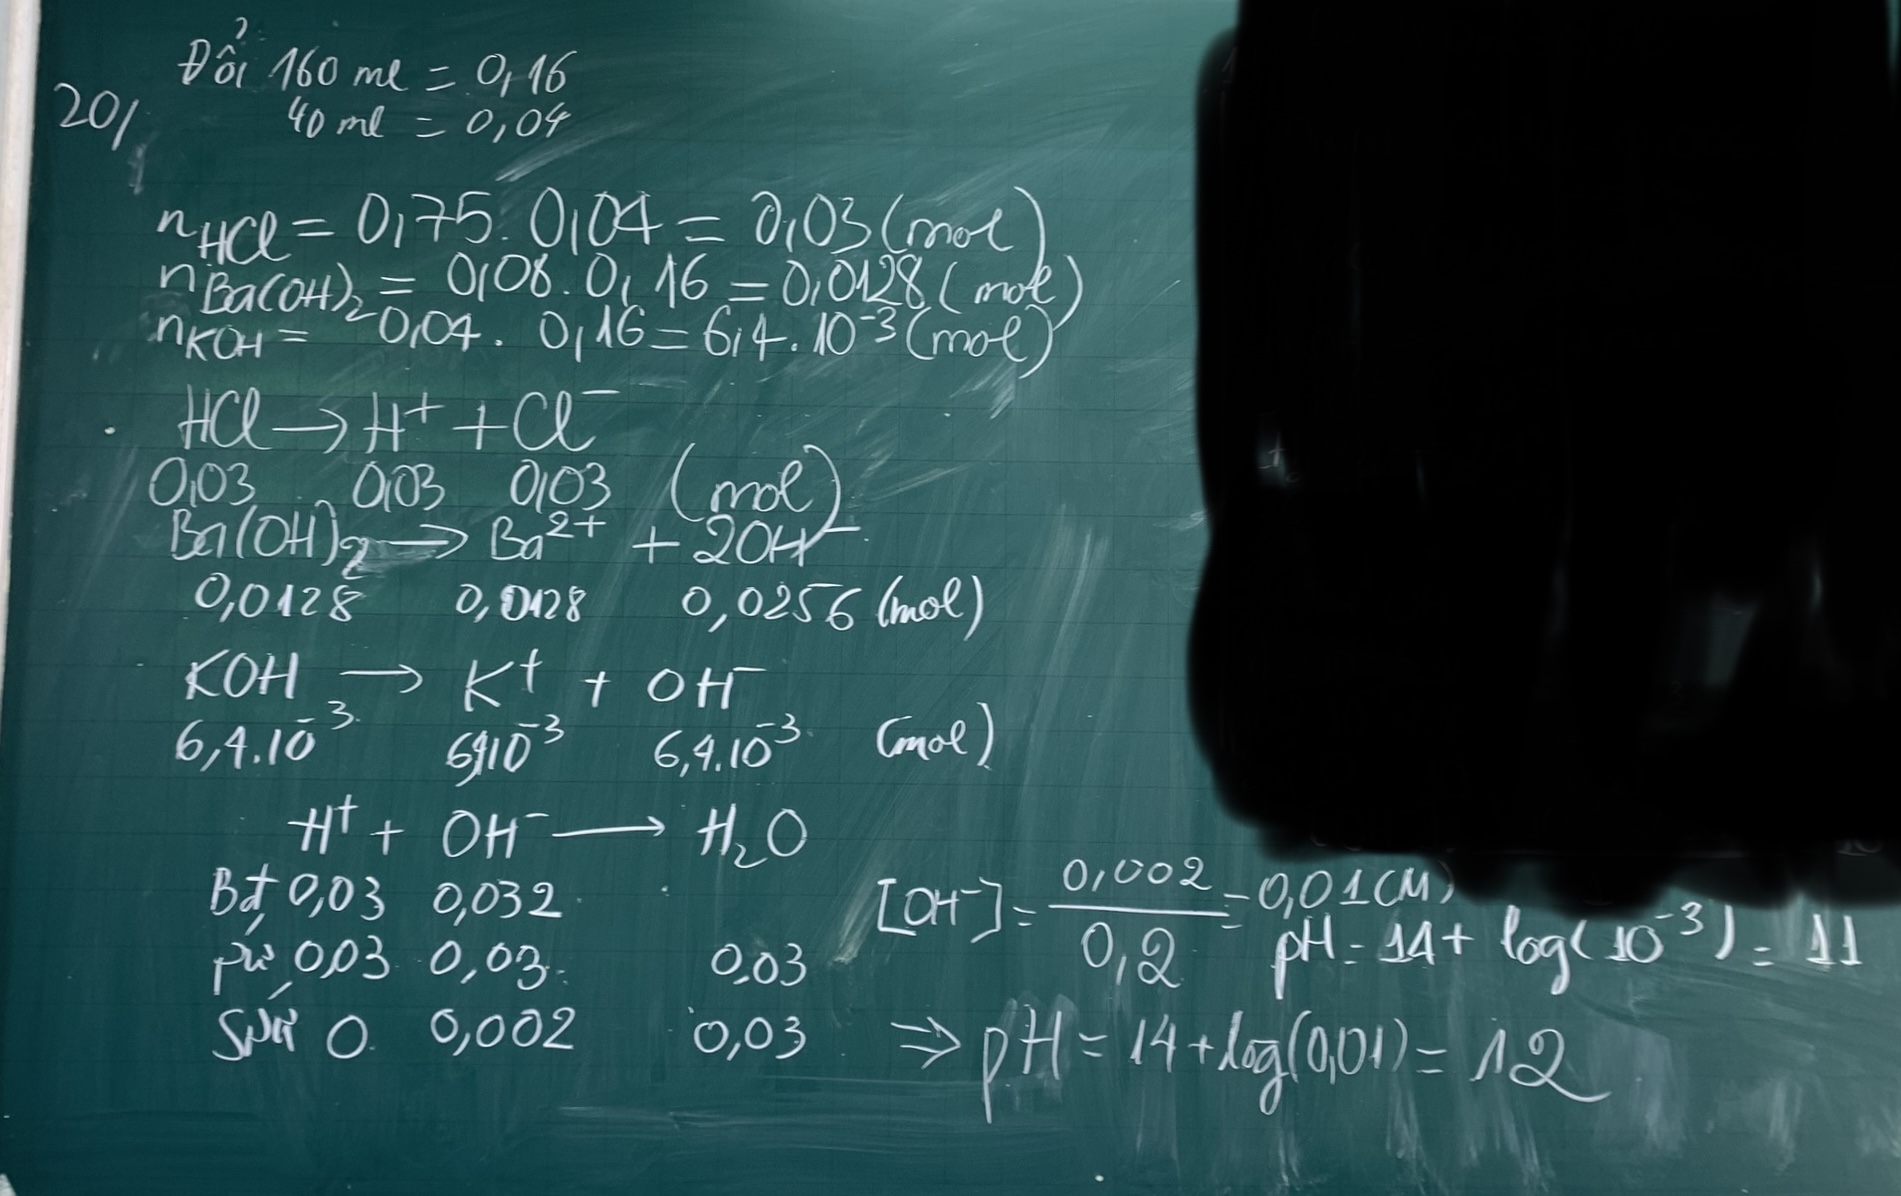 Đổi 160 ml = 0,16
20/ 40 ml = 0,04
nHCl = 0,75. 0,04 = 0,03 (mol)
nBa(OH)₂ = 0,08. 0,16 = 0,0128 (mol)
nKOH = 0,04. 0,16 = 6,4. 10⁻³ (mol)
HCl → H⁺ + Cl⁻
0,03 0,03 0,03 (mol)
Ba(OH)₂ → Ba²⁺ + 2OH⁻
0,0128 0,0128 0,0256 (mol)
KOH → K⁺ + OH⁻
6,4.10⁻³ 6,4.10⁻³ 6,4.10⁻³ (mol)
H⁺ + OH⁻ → H₂O
Bđ 0,03 0,032
pư 0,03 0,03 0,03
Spứ 0 0,002 0,03
[OH⁻] = 0,002/0,2 = 0,01 (M)
pH = 14 + log(10⁻³) = 11
⇒ pH = 14 + log(0,01) = 12